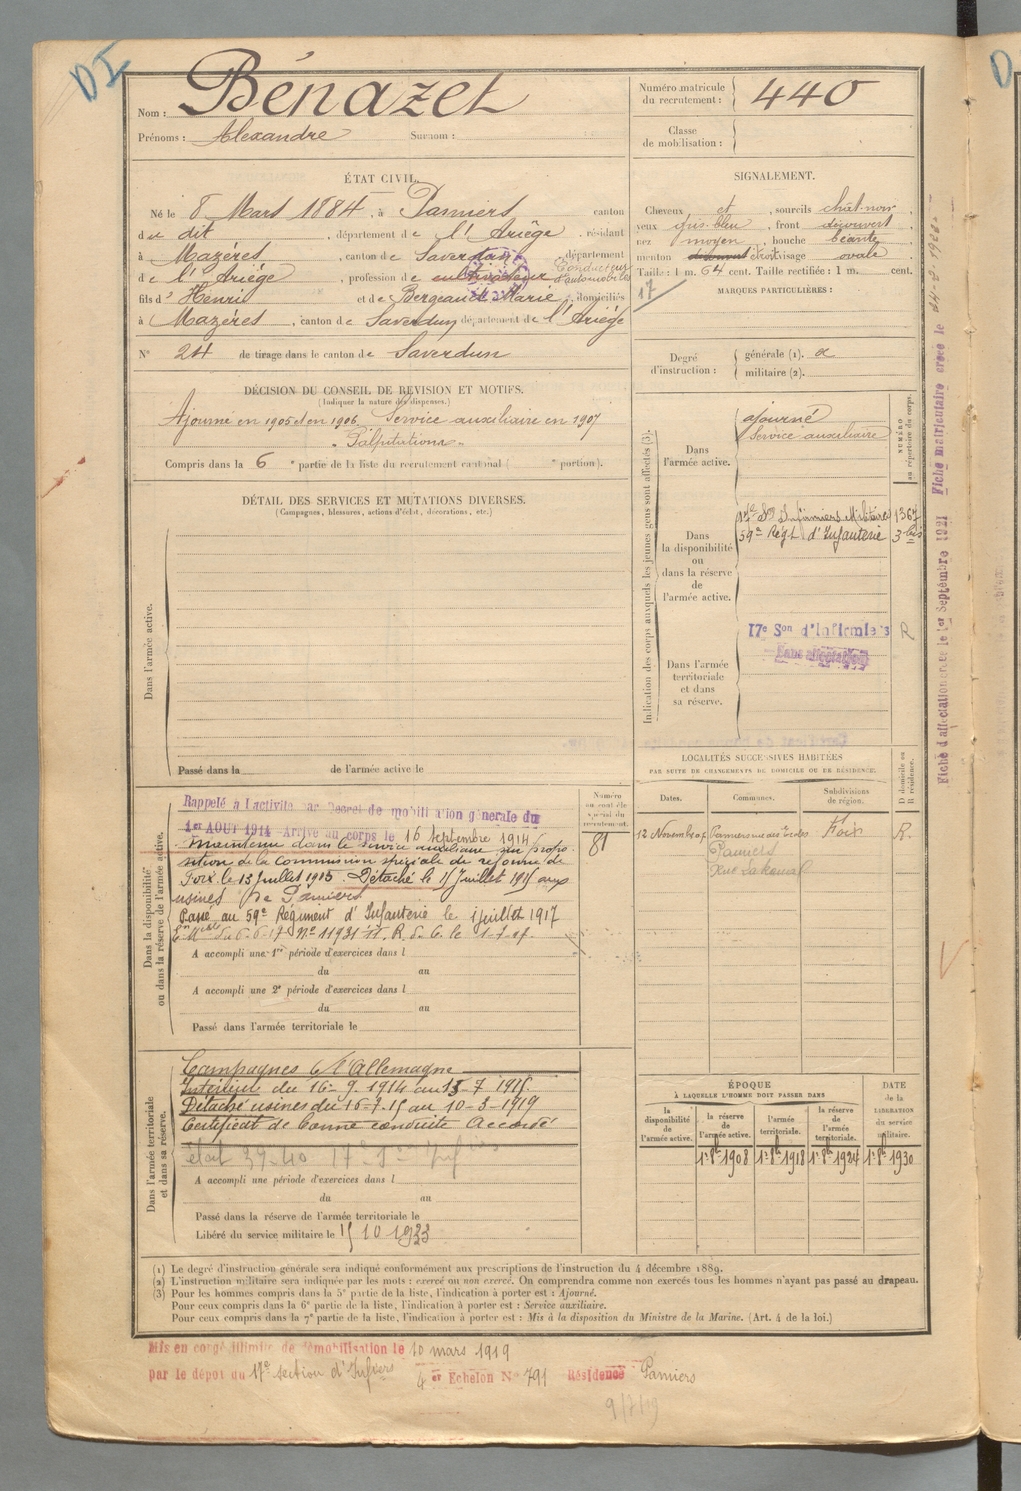 DI
Nom : Bénazet
Prénoms : Alexandre Surnom :
Numéro matricule du recrutement : 440
Classe de mobilisation :
ÉTAT CIVIL.
Né le 8 Mars 1884, à Pamiers canton
du dit, département de l'Ariège, résidant
à Mazères, canton de Saverdun, département
de l'Ariège, profession de cultivateur Conducteur d'automobiles
fils d' Henri et de Bergeaud Marie, domiciliés
à Mazères, canton de Saverdun département de l'Ariège
N° 24 de tirage dans le canton de Saverdun
SIGNALEMENT.
Cheveux et, sourcils chât-noir
yeux gris-bleu, front découvert
nez moyen, bouche béante
menton étroit visage ovale
Taille : 1 m. 64 cent. Taille rectifiée : 1 m. cent.
17
MARQUES PARTICULIÈRES :
Degré d'instruction :
générale (1). 2
militaire (2).
DÉCISION DU CONSEIL DE REVISION ET MOTIFS.
(Indiquer la nature des dispenses.)
Ajourné en 1905 et en 1906. Service auxiliaire en 1907
"Palpitations"
Compris dans la 6e partie de la liste du recrutement cantonal ( e portion).
DÉTAIL DES SERVICES ET MUTATIONS DIVERSES.
(Campagnes, blessures, actions d'éclat, décorations, etc.)
Dans l'armée active.
Passé dans la de l'armée active le
Indication des corps auxquels les jeunes gens sont affectés (3).
NUMÉRO au répertoire du corps.
Dans l'armée active.
ajourné
Service auxiliaire
Dans la disponibilité ou dans la réserve de l'armée active.
17e Son Infirmiers Militaires 1367
59e Régt d'Infanterie 3 bis
Dans l'armée territoriale et dans sa réserve.
17e Son d'Infirmiers R
Sans affectation
Fiche d'affectation créée le 1er Septembre 1921 Fiche matriculaire créée le
LOCALITÉS SUCCESSIVES HABITÉES
PAR SUITE DE CHANGEMENTS DE DOMICILE OU DE RÉSIDENCE.
Dates. Communes. Subdivisions de région. D domicile ou R résidence.
12 Novembre 07 Pamiers Foix R.
Pamiers
Rue Lakanal
Dans la disponibilité ou dans la réserve de l'armée active.
Numéro au contrôle spécial du recrutement.
81
Rappelé à l'activité par Décret de mobilisation générale du
1er AOUT 1914 - Arrivé au corps le 16 septembre 1914
Maintenu dans le service auxiliaire sur propo-
sition de la Commission spéciale de réforme de
Foix le 13 Juillet 1915. Détaché le 15 Juillet 1915 aux
usines de Pamiers
Passé au 59e Régiment d'Infanterie le 1 juillet 1917
A accompli une 1re période d'exercices dans l
du au
A accompli une 2e période d'exercices dans l
du au
Passé dans l'armée territoriale le
Dans l'armée territoriale et dans sa réserve.
Campagnes c/ l'Allemagne
Intérieur du 16-9-1914 au 15-7-1915
Détaché usines du 16-7-15 au 10-3-1919
Certificat de bonne conduite Accordé
A accompli une période d'exercices dans l
du au
Passé dans la réserve de l'armée territoriale le
Libéré du service militaire le 15 10 1933
ÉPOQUE
À LAQUELLE L'HOMME DOIT PASSER DANS
DATE de la LIBÉRATION du service militaire.
la disponibilité de l'armée active. la réserve de l'armée active. l'armée territoriale. la réserve de l'armée territoriale.
1er 8bre 1908 1er 8bre 1918 1er 8bre 1924 1er 8bre 1930
(1) Le degré d'instruction générale sera indiqué conformément aux prescriptions de l'instruction du 4 décembre 1889.
(2) L'instruction militaire sera indiquée par les mots : exercé ou non exercé. On comprendra comme non exercés tous les hommes n'ayant pas passé au drapeau.
(3) Pour les hommes compris dans la 5e partie de la liste, l'indication à porter est : Ajourné.
Pour ceux compris dans la 6e partie de la liste, l'indication à porter est : Service auxiliaire.
Pour ceux compris dans la 7e partie de la liste, l'indication à porter est : Mis à la disposition du Ministre de la Marine. (Art. 4 de la loi.)
Mis en congé illimité de démobilisation le 10 mars 1919
par le dépot du 17e section d'Infiers 4 er Echelon N° 791 Résidence Pamiers
9/7/19